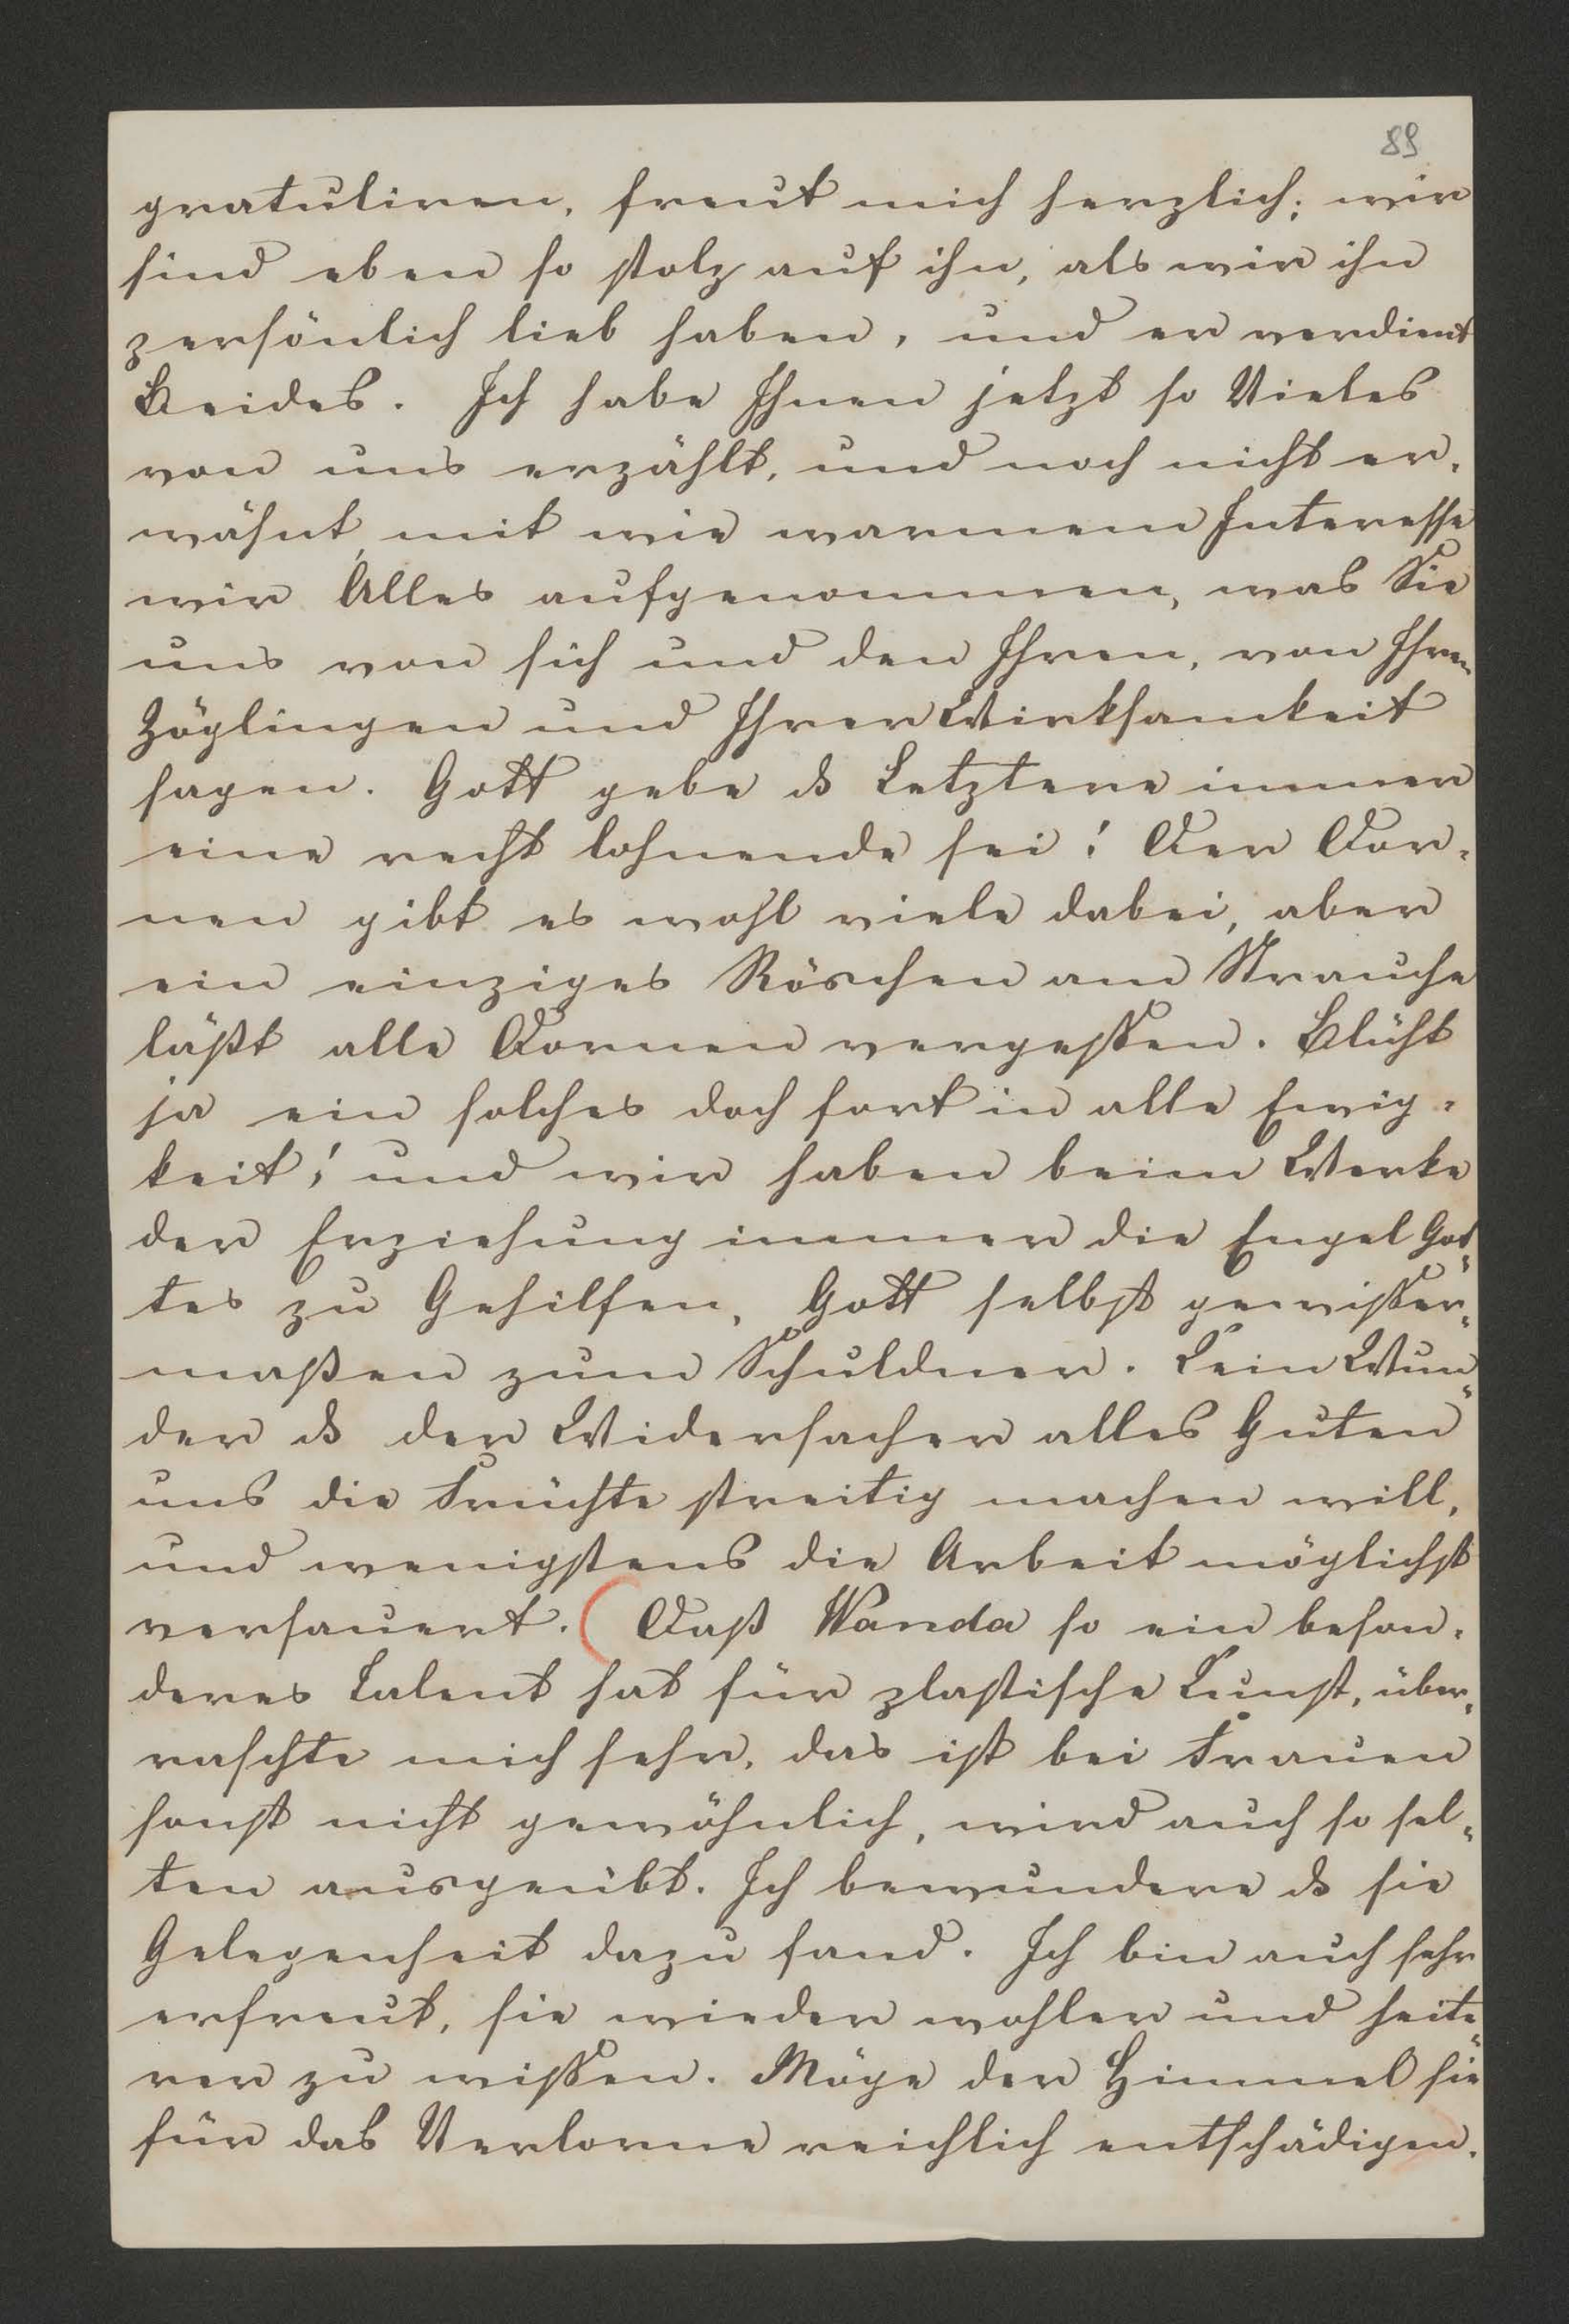 89
gratuliren, freut mich herzlich; wir
sind eben so stolz auf ihn, als wir ihn
persönlich lieb haben, und er verdient
Beides. Ich habe Ihnen jetzt so Vieles
von uns erzählt, und noch nicht er-
wähnt, mit wie warmem Interesse
wir Alles aufgenommen, was Sie
uns von sich und den Ihren, von Ihren
Zöglingen und Ihrer Wirksamkeit
sagen. Gott gebe ds Letztere immer
eine recht lohnende sei! Der Dor-
nen gibt es wohl viele dabei, aber
ein einziges Röschen am Strauche
läßt alle Dornen vergessen. Blüht
ja ein solches doch fort in alle Ewig-
keit! und wir haben beim Werke
der Erziehung immer die Engel Got-
tes zu Gehilfen, Gott selbst gewisser-
maßen zum Schuldner. Kein Wun-
der ds der Widersacher alles Guten
uns die Früchte streitig machen will,
und wenigstens die Arbeit möglichst
versauert. (Daß Wanda so ein beson-
deres Talent hat für plastische Kunst, über-
raschte mich sehr, das ist bei Frauen
sonst nicht gewöhnlich, wird auch so sel-
ten ausgeübt. Ich bewundere ds sie
Gelegenheit dazu fand. Ich bin auch sehr
erfreut, sie wieder wohler und heite-
rer zu wissen. Möge der Himmel sie
für das Verlorne reichlich entschädigen.